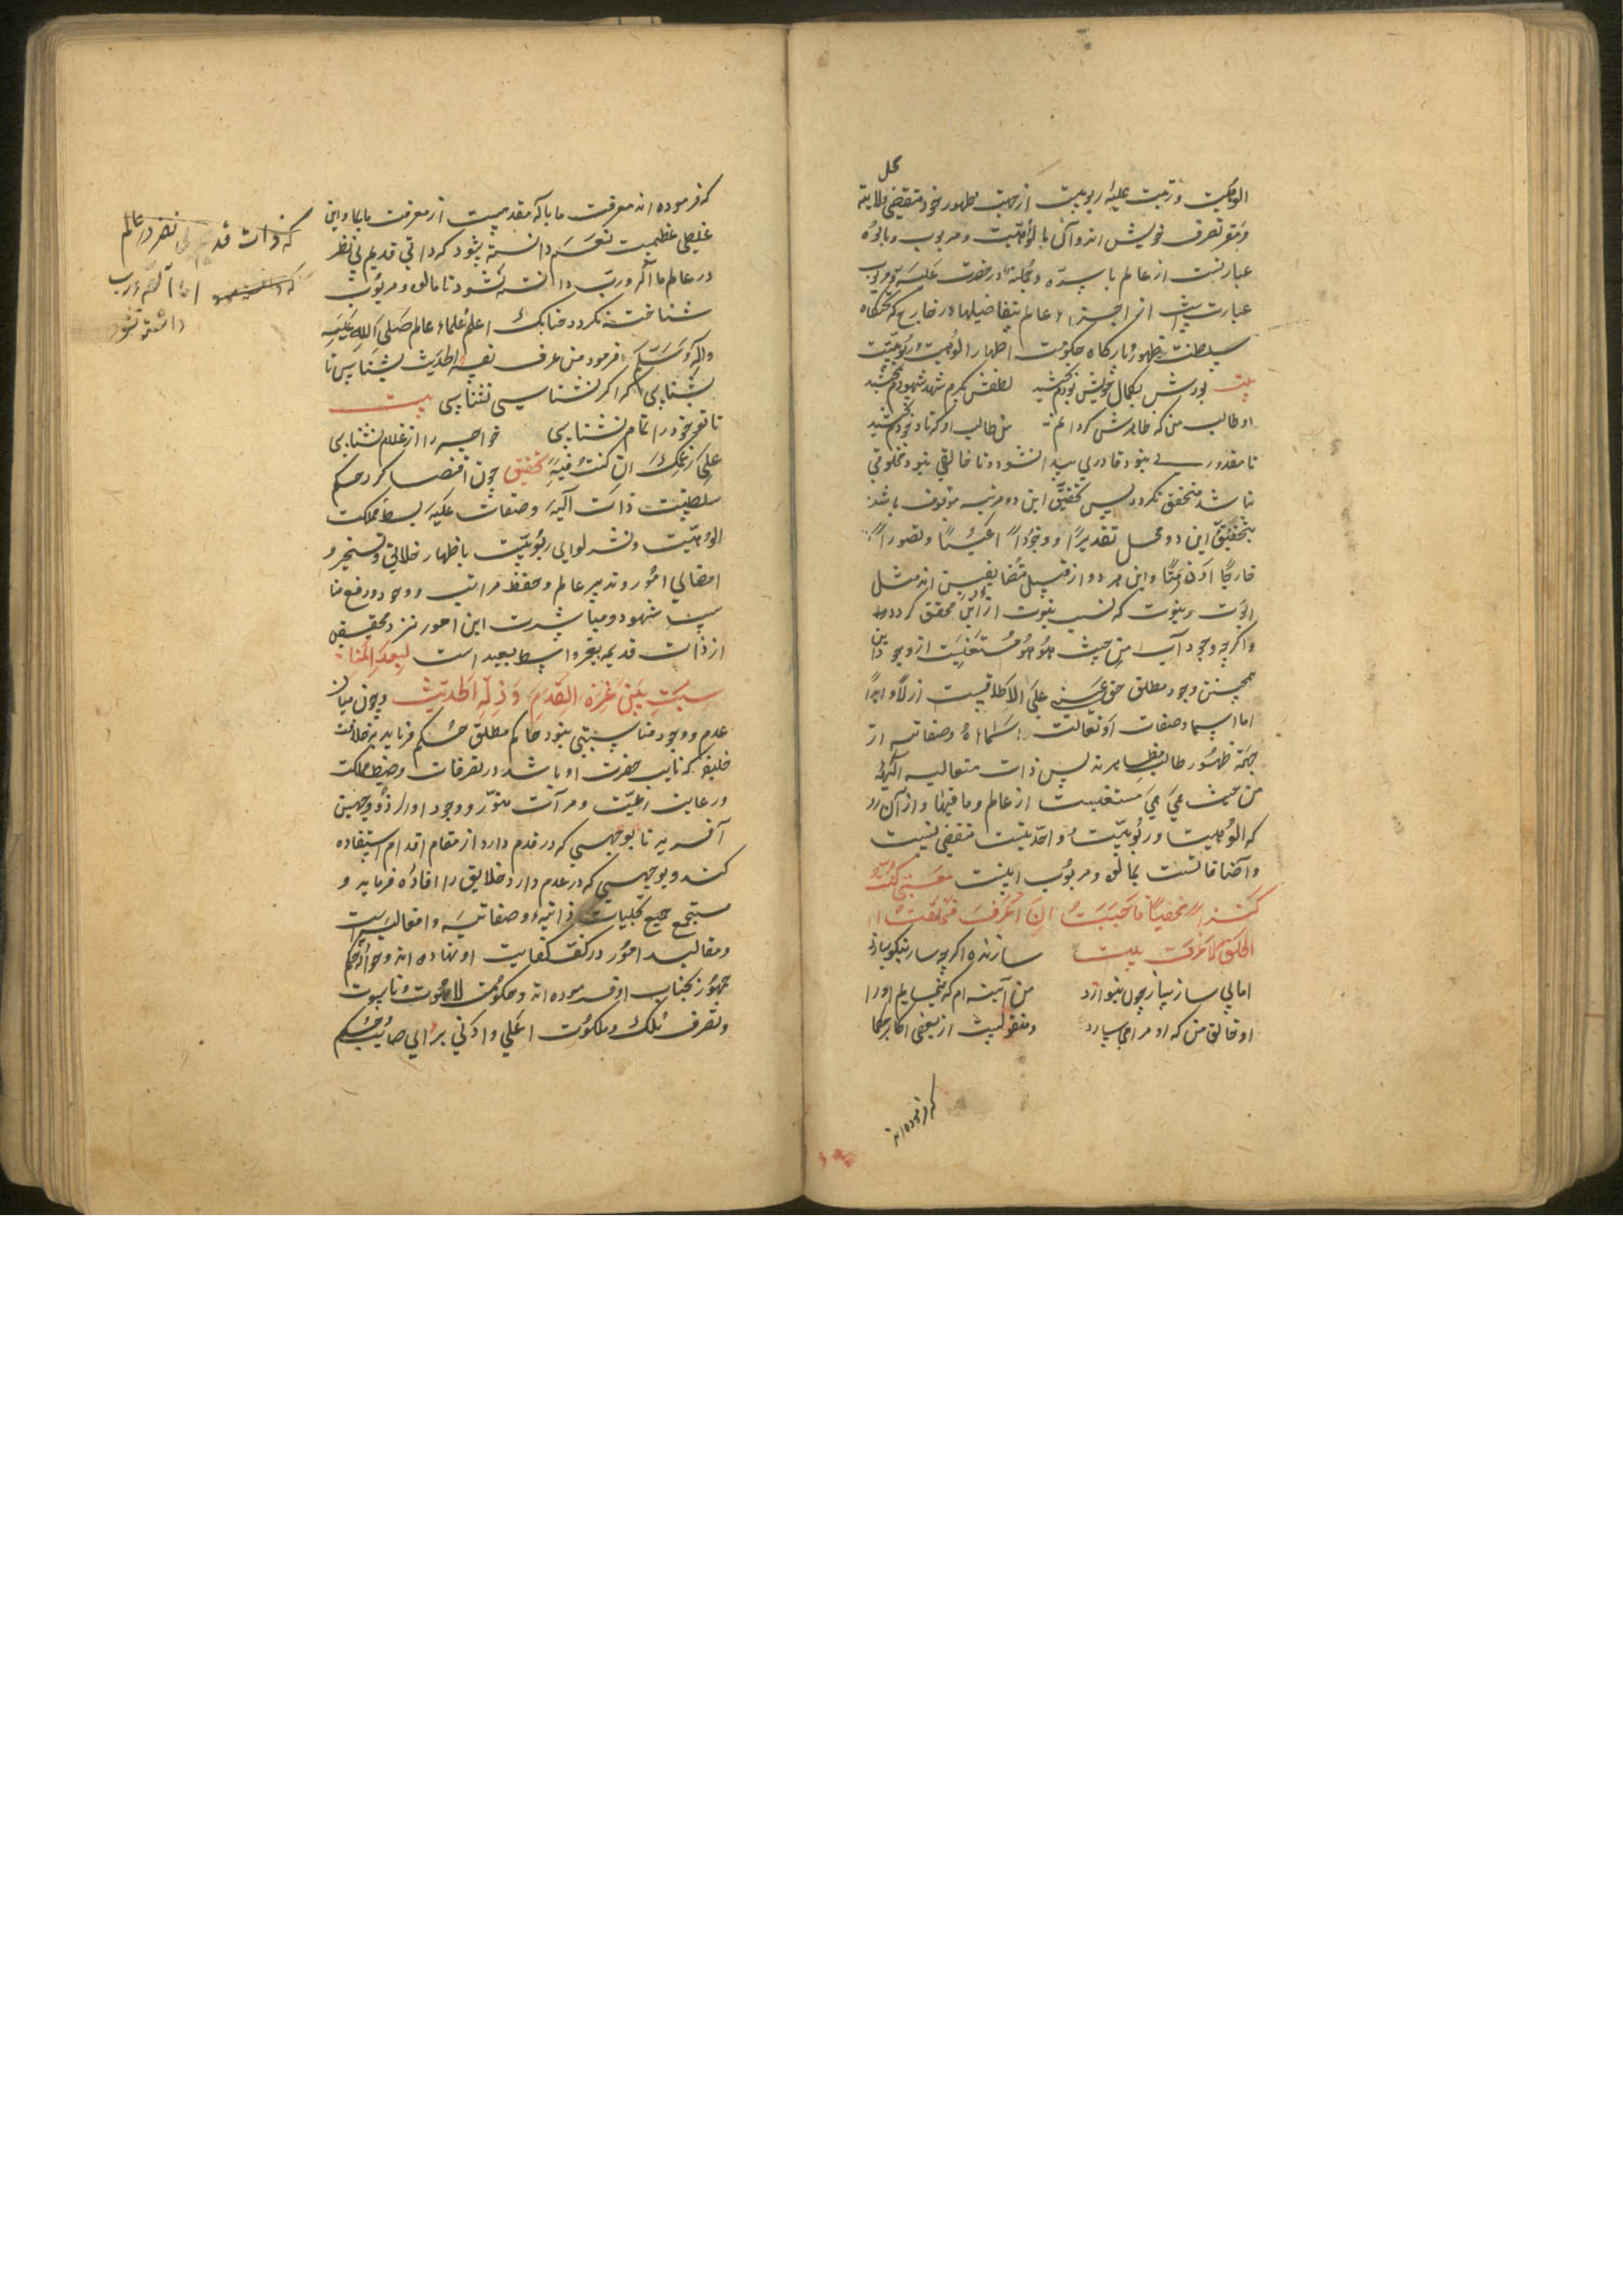 محل
الوهیت و رتبت علیه ربوبیت از جهت ظهور خود مقتضی ولایته
و مقر تصرف خویش اند و آن مالوهیت و مربوب و مالوه
عبارتست از عالم باسره و بجملته در حضرت علمیه و مربوب
عبارتست از اجزاء عالم بتفاصیلها در خارج که تختگاه
سلطنت ظهور و بارگاه حکومت اظهار الوهیت و ربوبیت
بیت بودش بکمال خویش بودم بخشید لطفش بکرم شهد شهودم بخشید
او طالب من که ظاهرش گردانم من طالب او که تا وجودم بخشید
تا مقدوری نبود قادری پیدا نشود و تا خالقی نبود مخلوقی
نباشد متحقق نگردد پس تحقیق این دو مرتبه موقوف باشد
بتحقیق این دو محل تقدیرا و وجودا عینا و تصورا
خارجا او ذهنا و این هر دو از قبیل متضایفین اند مثل
ابوت و بنوت که نسب بنوت از ابن محقق گردد
و اگرچه وجود اب من حیث هو هو مستغنیست از وجود ابن
همچنین وجود مطلق حق غنی علی الاطلاقست ازلا و ابدا
اما اسما و صفات او تعالیت اسماءه و صفاته از
جهة ظهور طالب مظاهرند پس ذات متعالیه الهیه
من حیث هی هی مستغنیست از عالم و ما فیها و از آن رو
که الوهیت و ربوبیت و احدیتست مقتضی نسبت
و اضافاتست بمالوه و مربوب اینست معنی کنت
کنزا مخفیا فاحببت ان اعرف فخلقت
الخلق لاعرف بیت سازنده اگرچه ساز نیکو سازد
اما بی ساز ساز چون بنوازد من آینه ام که می نمایم او را
او خالق من که او مرا می سازد و منقولست از بعضی اکابر حکما
که فرموده اند
که فرموده اند معرفت ما باله مقدمست از معرفت ما بما و این
غلطی عظیمست نعم دانسته بشود که ذاتی قدیم بی نظر
در عالم اما اله و رب دانسته نشود تا مالوه و مربوب
شناخته نگردد چنانک اعلم علماء عالم صلی الله علیه
و آله و سلم فرمود من عرف نفسه الحدیث بشناس تا
بشناسی که اگر نشناسی نشناسی بیت
تا تو خود را تمام نشناسی خواجه را از غلام نشناسی
علی زعمک ان کنت فیه تحقیق چون اقتضا کرد حکم
سلطنت ذات الهیه و صفات علیه بسط مملکت
الوهیت و نشر لوای ربوبیت باظهار خلائق و تسخیر و
امضای امور و تدبیر عالم و حفظ مراتب وجود و رفع منا
سب شهود و مباشرت این امور نزد محققین
از ذات قدیمه بغیر واسطه بعید است لبعد المنا
سبت بین عزة القدم و ذلة الحدیث و چون میان
عدم و وجود مناسبتی نبود حاکم مطلق حکم فرماید بخلافت
خلیفه که نایب حضرت او باشد در تصرفات و ضبط مملکت
و رعایت رعیت و مرآت منور وجود او را ذو وجهین
آفرید تا بوجهی که در قدم دارد از مقام اقدام استفاده
کند و بوجهی که در عدم دارد خلایق را افاده فرماید و
مستجمع جمیع تجلیات ذاتیه و صفاتیه و افعالیه است
و مقالید امور در کف کفایت او نهاده اند و حوالهٔ حکم
جمهور بجناب او فرموده اند و حکومت لاهوت و ناسوت
و تصرف ملک و ملکوت اعلی و ادنی برای صایب حکم
که ذات قد نظر در عالم
اما اله و رب
دانسته نشود